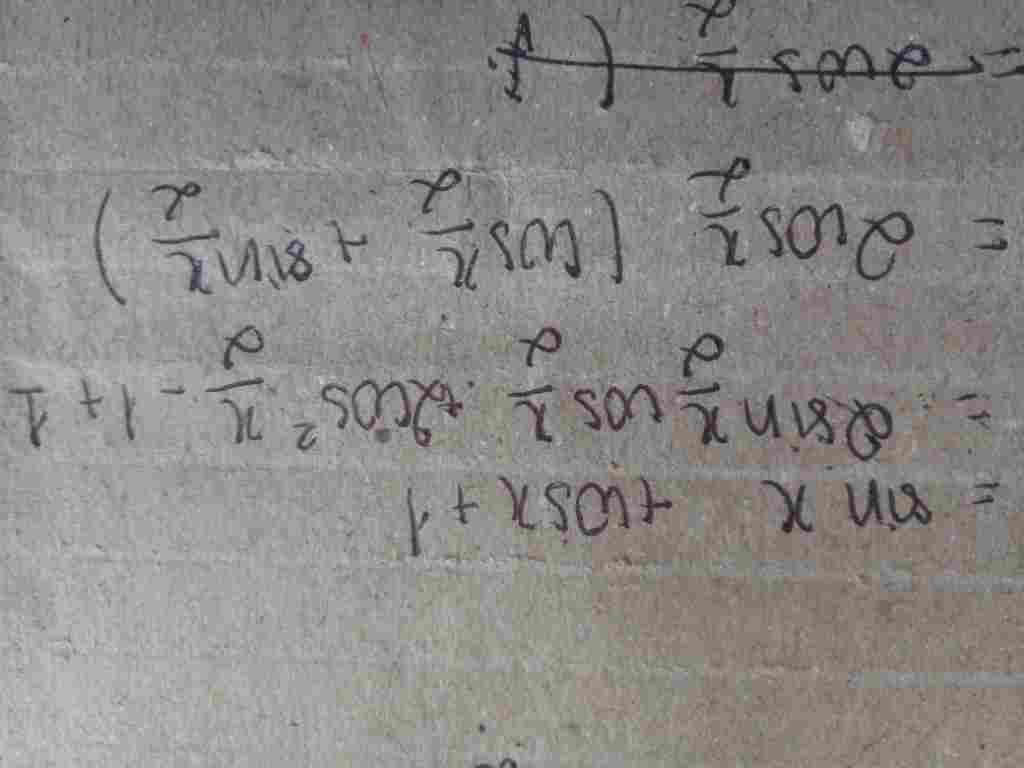 = sin x + cosx + 1
= 2sin x/2 cos x/2 + 2cos² x/2 - 1 + 1
= 2cos x/2 (cos x/2 + sin x/2)
= 2cos x/2 (